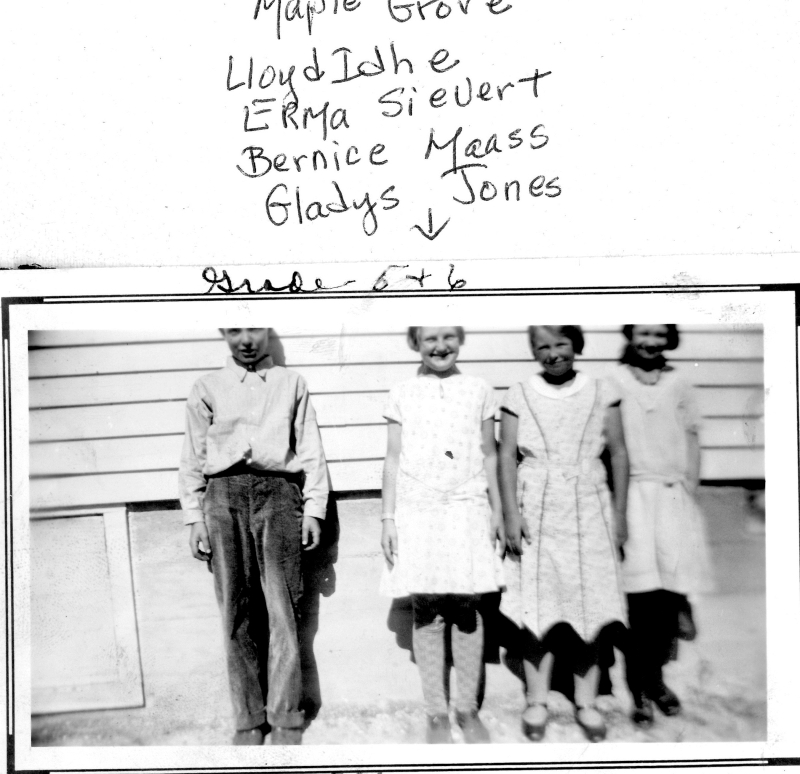 Maple Grove
Lloyd Idhe
ERMa Sievert
Bernice Maass
Gladys Jones
Grade 5 + 6